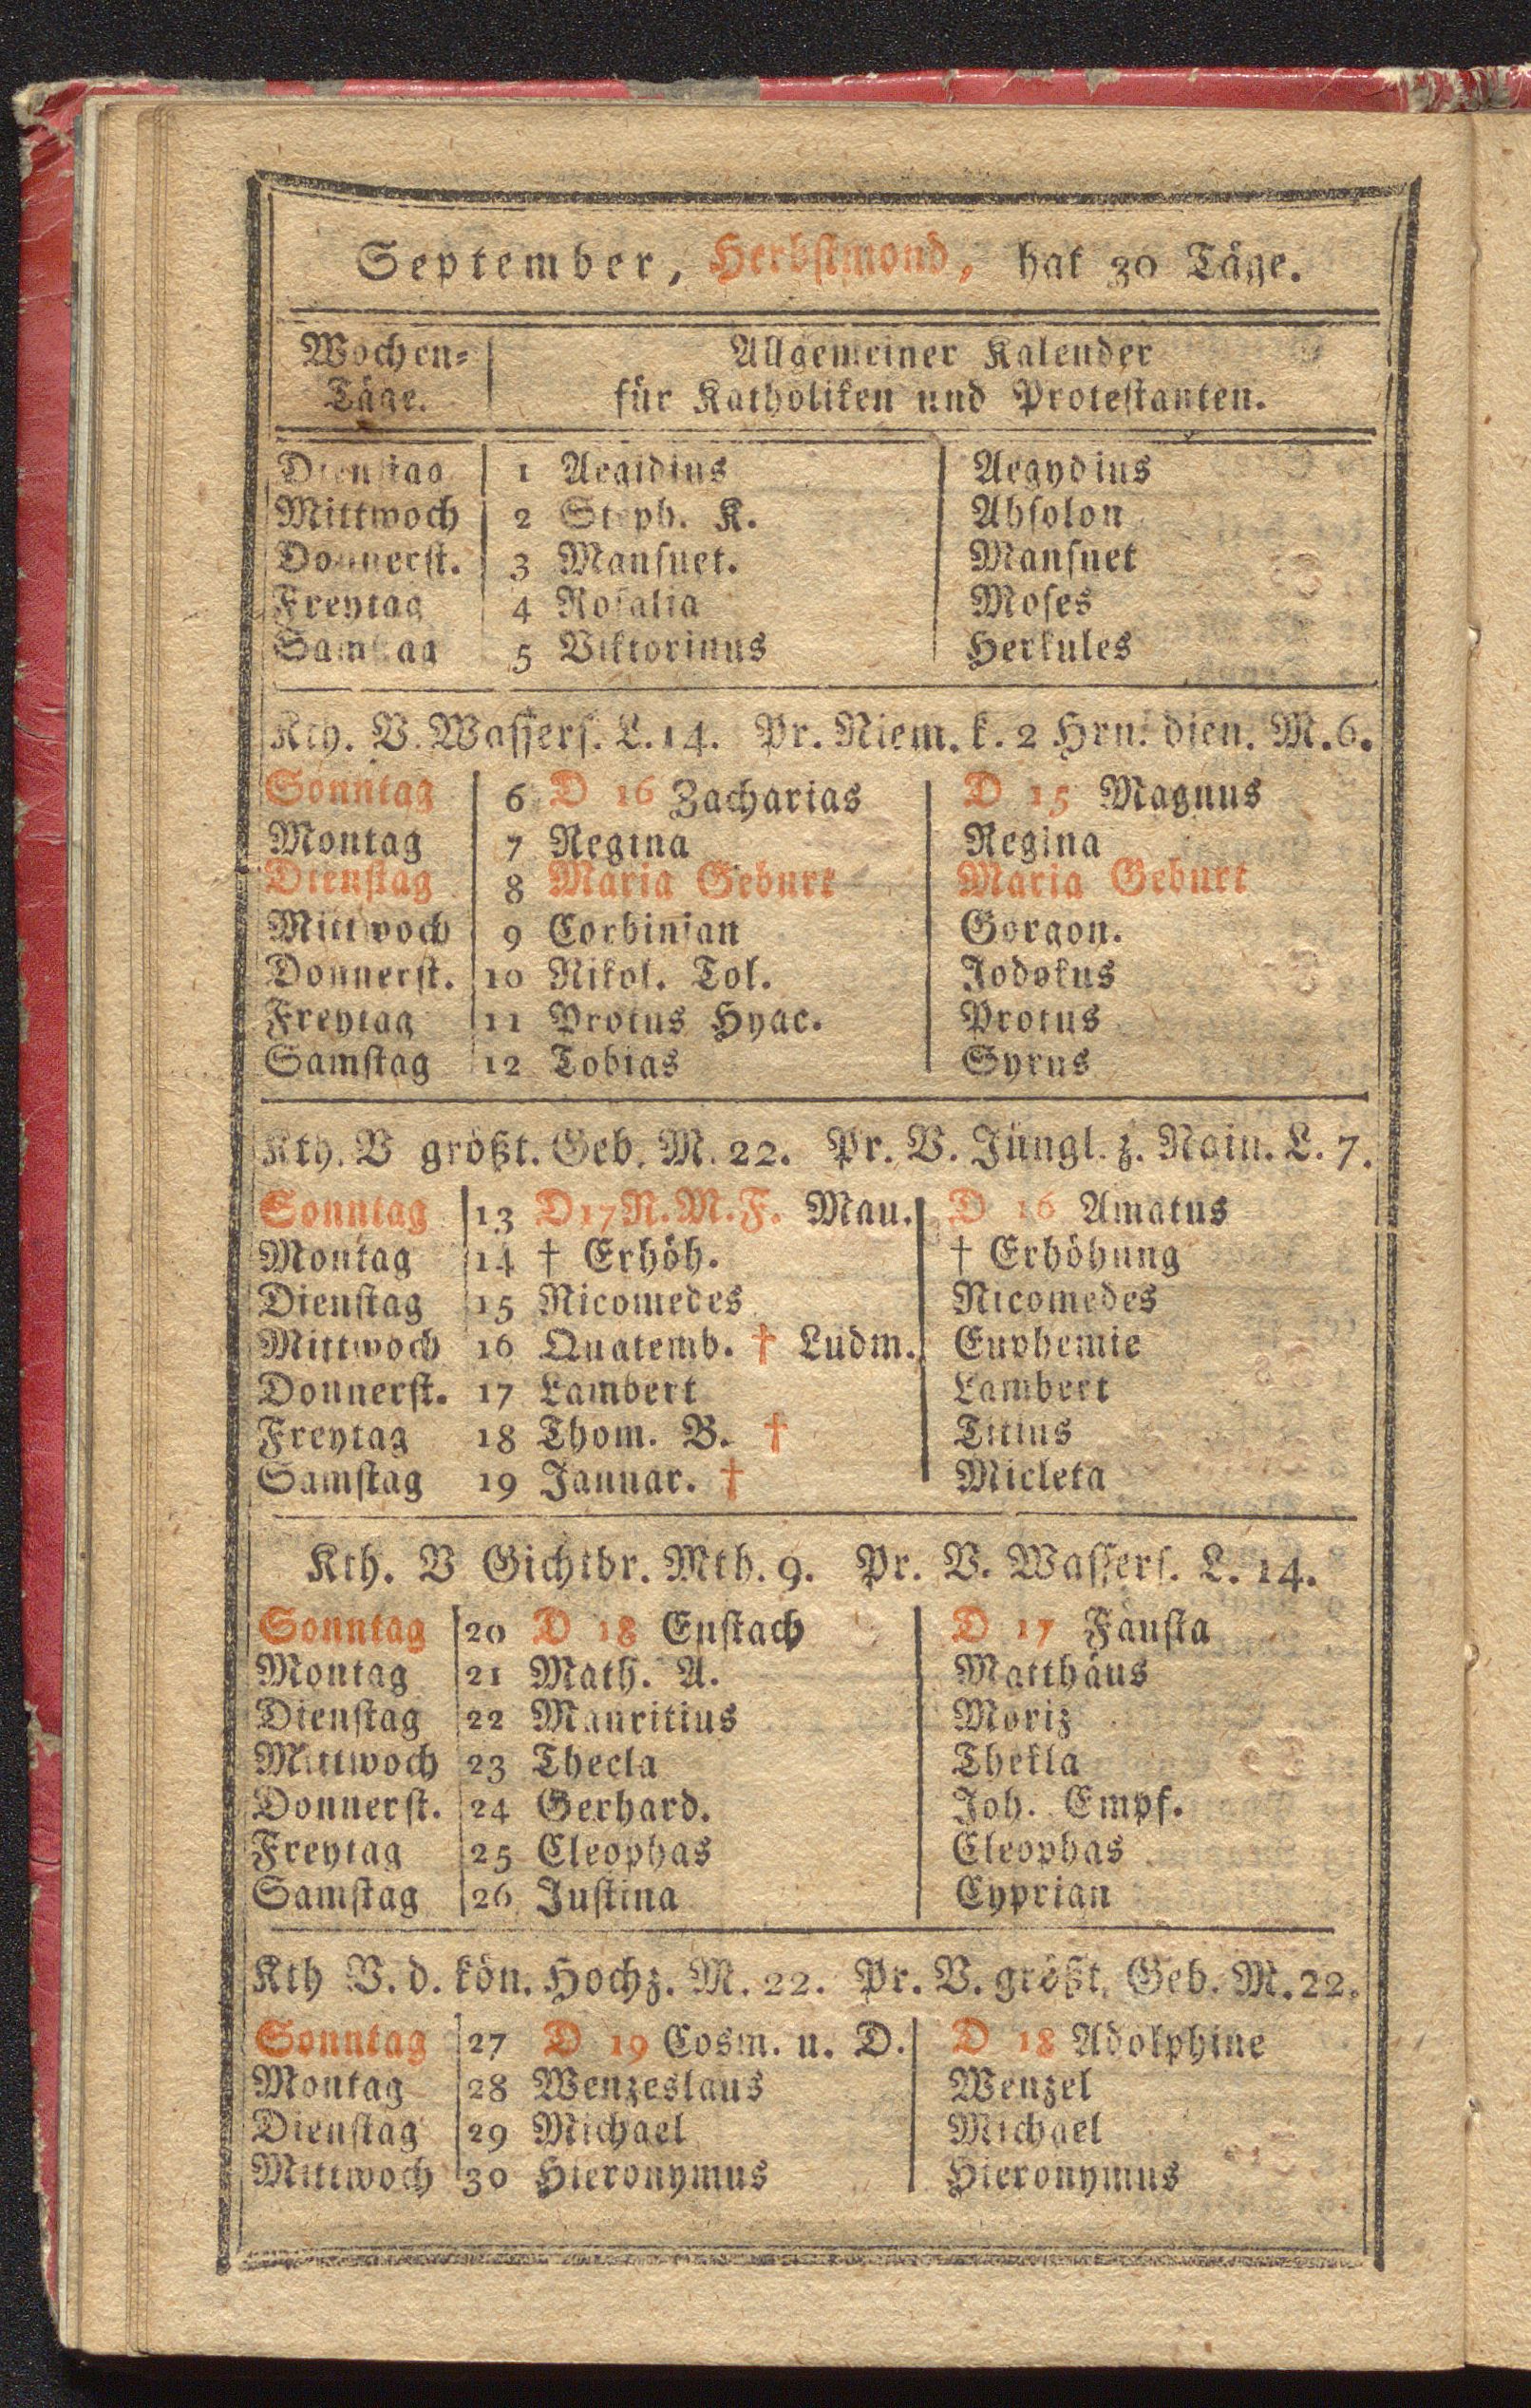 September, Herbstmond, hat 30 Täge.
Wochen- Allgemeiner Kalender
Täge. für Katholiken und Protestanten.
Dienstag 1 Aegidius Aegydius
Mittwoch 2 Steph. K. Absolon
Donnerst. 3 Mansuet. Mansuet
Freytag 4 Rosalia Moses
Samstag 5 Viktorinus Herkules
Kth. V. Wassers. L. 14. Pr. Niem. k. 2 Hrn. dien. M. 6.
Sonntag 6 D 16 Zacharias D 15 Magnus
Montag 7 Regina Regina
Dienstag 8 Maria Geburt Maria Geburt
Mittwoch 9 Corbinian Gorgon.
Donnerst. 10 Nikol. Tol. Jodokus
Freytag 11 Protus Hyac. Protus
Samstag 12 Tobias Syrus
Kth. V größt. Geb. M. 22. Pr. V. Jüngl. z. Nain. L. 7.
Sonntag 13 D 17 N. M. F. Mau. D 16 Amatus
Montag 14 † Erhöh. † Erhöhung
Dienstag 15 Nicomedes Nicomedes
Mittwoch 16 Quatemb. † Ludm. Euphemie
Donnerst. 17 Lambert Lambert
Freytag 18 Thom. B. † Titius
Samstag 19 Januar. † Micleta
Kth. V Gichtbr. Mth. 9. Pr. V. Wassers. L. 14.
Sonntag 20 D 18 Eustach D 17 Fausta
Montag 21 Math. A. Matthäus
Dienstag 22 Mauritius Moriz
Mittwoch 23 Thecla Thekla
Donnerst. 24 Gerhard. Joh. Empf.
Freytag 25 Cleophas Cleophas
Samstag 26 Justina Cyprian
Kth V. d. kön. Hochz. M. 22. Pr. V. größt. Geb. M. 22.
Sonntag 27 D 19 Cosm. u. D. D 18 Adolphine
Montag 28 Wenzeslaus Wenzel
Dienstag 29 Michael Michael
Mittwoch 30 Hieronymus Hieronymus